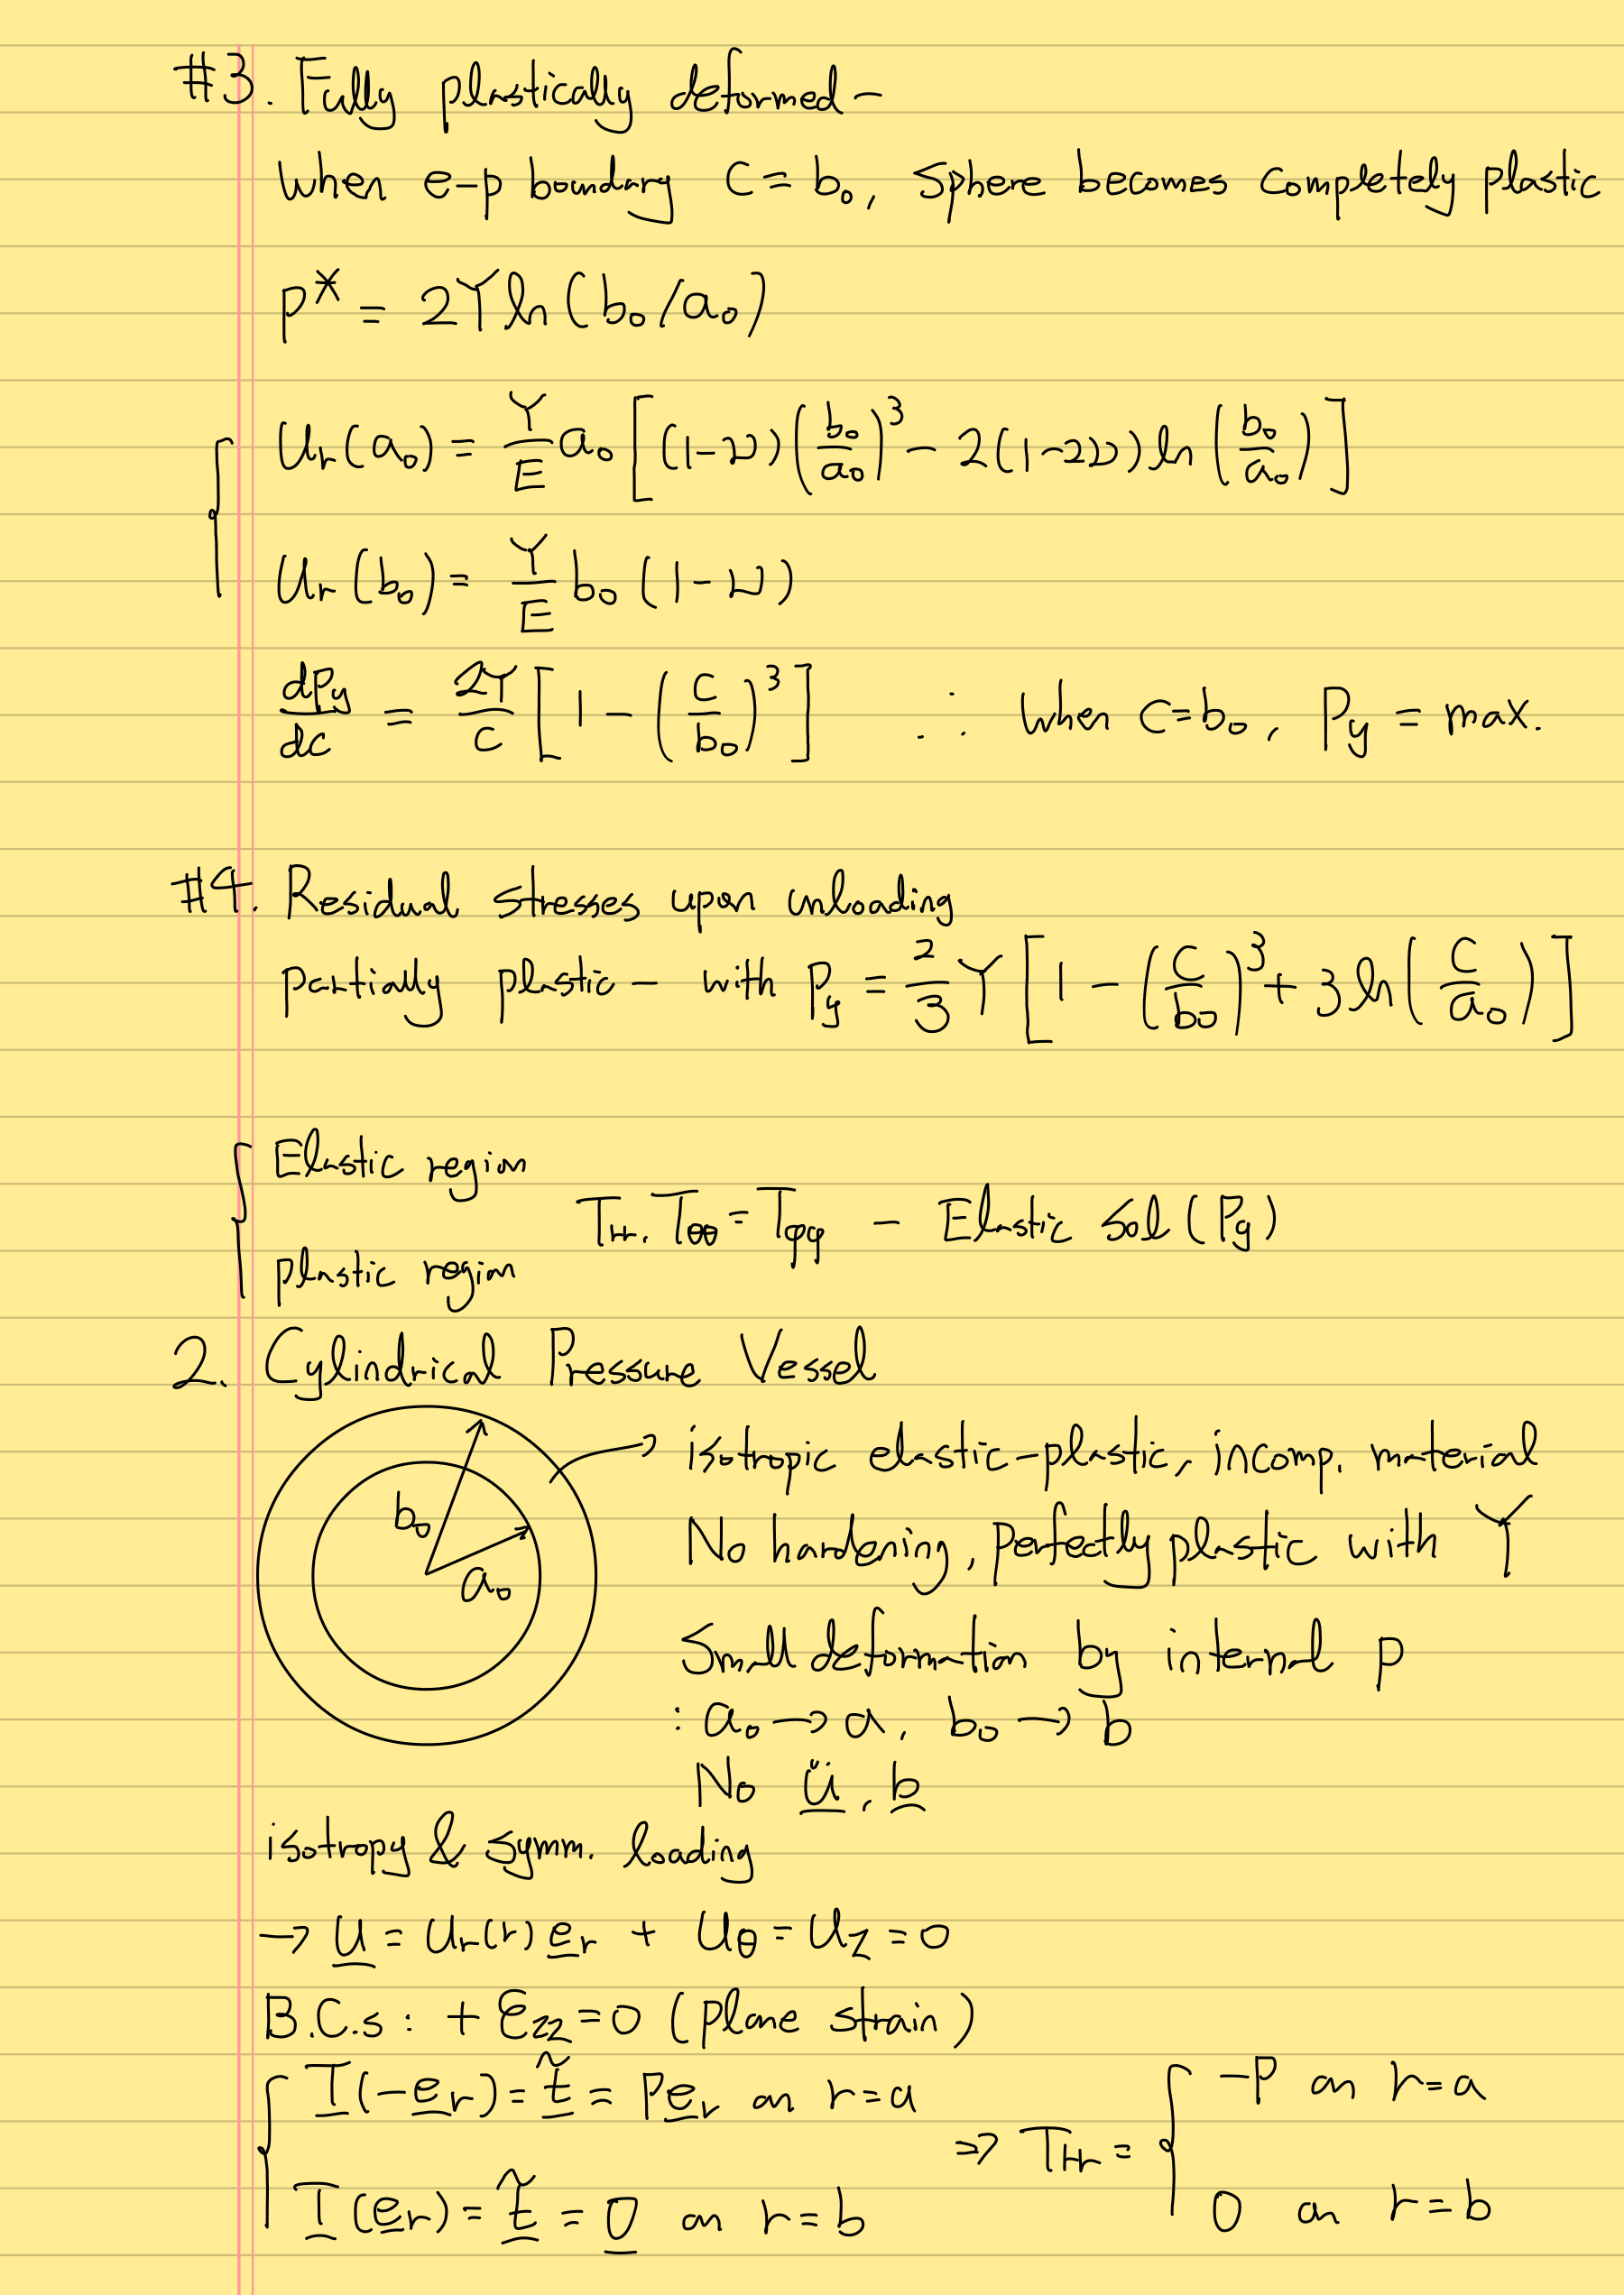 #3. Fully plastically deformed –
when e-p boundary c = b₀, sphere becomes completely plastic
p* = 2Y ln(b₀/a₀)
uᵣ(a₀) = Y/E a₀ [(1-ν)(b₀/a₀)³ - 2(1-2ν) ln(b₀/a₀)]
uᵣ(b₀) = Y/E b₀ (1-ν)
dPy/dc = 2Y/c [1 - (c/b₀)³] ∴ when c=b₀, Py = max.
#4. Residual stresses upon unloading
partially plastic – with Py = 2/3 Y [1 - (c/b₀)³ + 3 ln(c/a₀)]
Elastic region
Trr, Tθθ = Tφφ – Elastic sol (Py)
plastic region
2. Cylindrical Pressure Vessel
isotropic elastic-plastic, incomp. material
b₀
No hardening, perfectly plastic with Y
a₀
Small deformation by internal p
: a₀ → a, b₀ → b
No ü, b
isotropy & symm. loading
→ u = uᵣ(r) eᵣ + uθ = uz = 0
B.C.s : + εzz = 0 (plane strain)
T(-eᵣ) = t̃ = peᵣ on r=a
⇒ Trr = { -P on r=a
T(eᵣ) = t̃ = 0 on r=b
0 on r=b